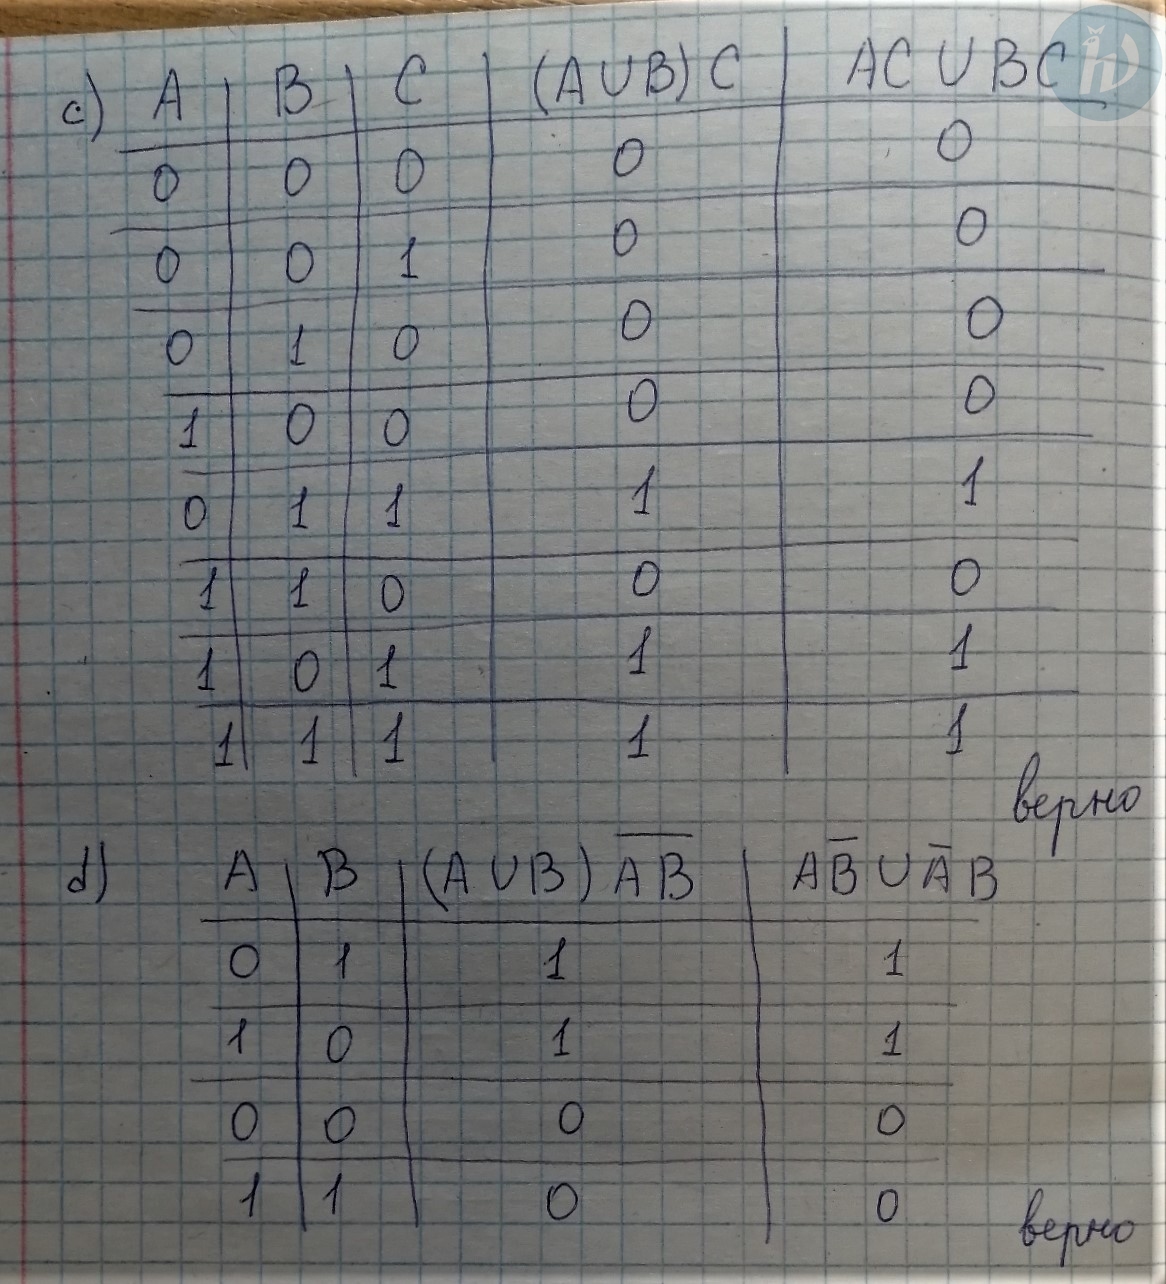 c) A B C (A∪B)C AC∪BC
0 0 0 0 0
0 0 1 0 0
0 1 0 0 0
1 0 0 0 0
0 1 1 1 1
1 1 0 0 0
1 0 1 1 1
1 1 1 1 1
верно
d) A B (A∪B)A̅B̅ AB̅∪A̅B
0 1 1 1
1 0 1 1
0 0 0 0
1 1 0 0
верно